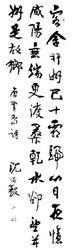 客舍并州已十霜歸心日夜憶
咸陽無端更渡桑乾水卻望并
州是故鄉 唐賈島詩 沈